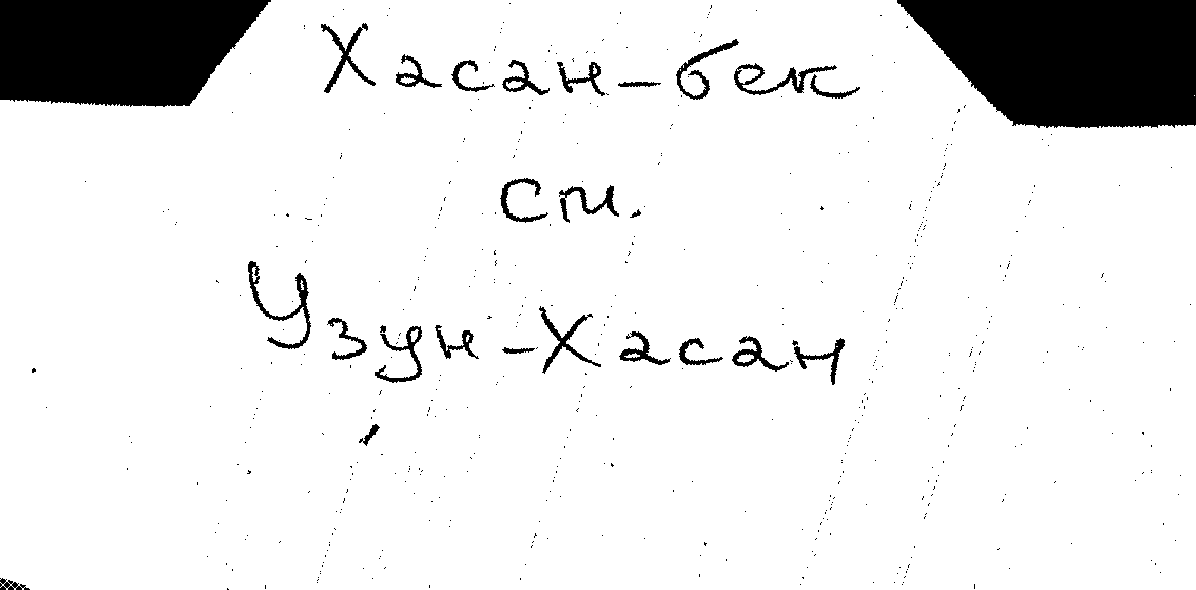 Хасан-бек
см.
Узун-Хасан